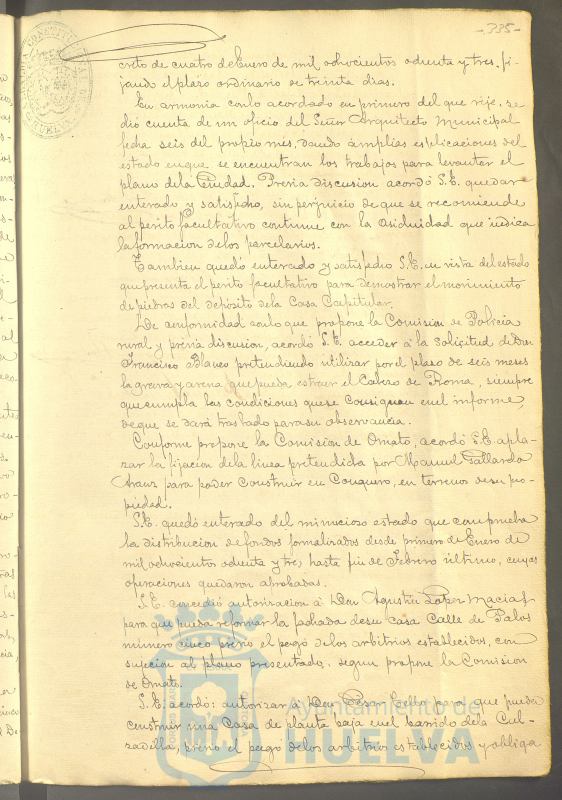 -335-
creto de cuatro de Enero de mil ochocientos ochenta y tres, fi-
jando el plazo ordinario de treinta dias.
En armonia con lo acordado en primero del que rije, se
dió cuenta de un oficio del Señor Arquitecto Municipal
fecha seis del propio mes, dando ámplias esplicaciones del
estado en que se encuentran los trabajos para levantar el
plano de la Ciudad. Prévia discusion acordó S.E. quedar
enterado y satisfecho, sin perjuicio de que se recomiende
al perito facultativo continue con la asiduidad que indica
la formacion de los parcelarios.
Tambien quedó enterado y satisfecho S.E. en vista del estado
que presenta el perito facultativo para demostrar el movimiento
de piedras del depósito de la Casa Capitular.
De conformidad con lo que propone la Comision de Policía
rural y prévia discusion, acordó S.E. acceder á la solicitud de Don
Francisco Blanco pretendiendo utilizar por el plazo de seis meses
la grava y arena que pueda estraer el Cabezo de Roma, siempre
que cumpla las condiciones que se consignan en el informe,
de que se dará traslado para su observancia.
Conforme propone la Comision de Ornato, acordó S.E. apla-
zar la fijacion de la linea pretendida por Manuel Gallardo
Arauz para poder construir en Conquero, en terrenos de su pro-
piedad.
S.E. quedó enterado del minucioso estado que comprueba
la distribucion de fondos formalizados desde primero de Enero de
mil ochocientos ochenta y tres, hasta fin de Febrero último, cuyas
operaciones quedaron aprobadas.
S.E. concedió autorizacion á Don Agustin Lopez Macias
para que pueda reformar la fachada de su casa Calle de Palos
número cinco prévio el pago de los arbitrios establecidos, con
sujecion al plano presentado, segun propone la Comision
de Ornato.
S.E. acordó: autorizar á Don Cesar para que pueda
construir una Casa de planta baja en el barrido de la Cal-
zadilla, prévio el pago de los arbitrios establecidos y obliga
Ayuntamiento de
HUELVA